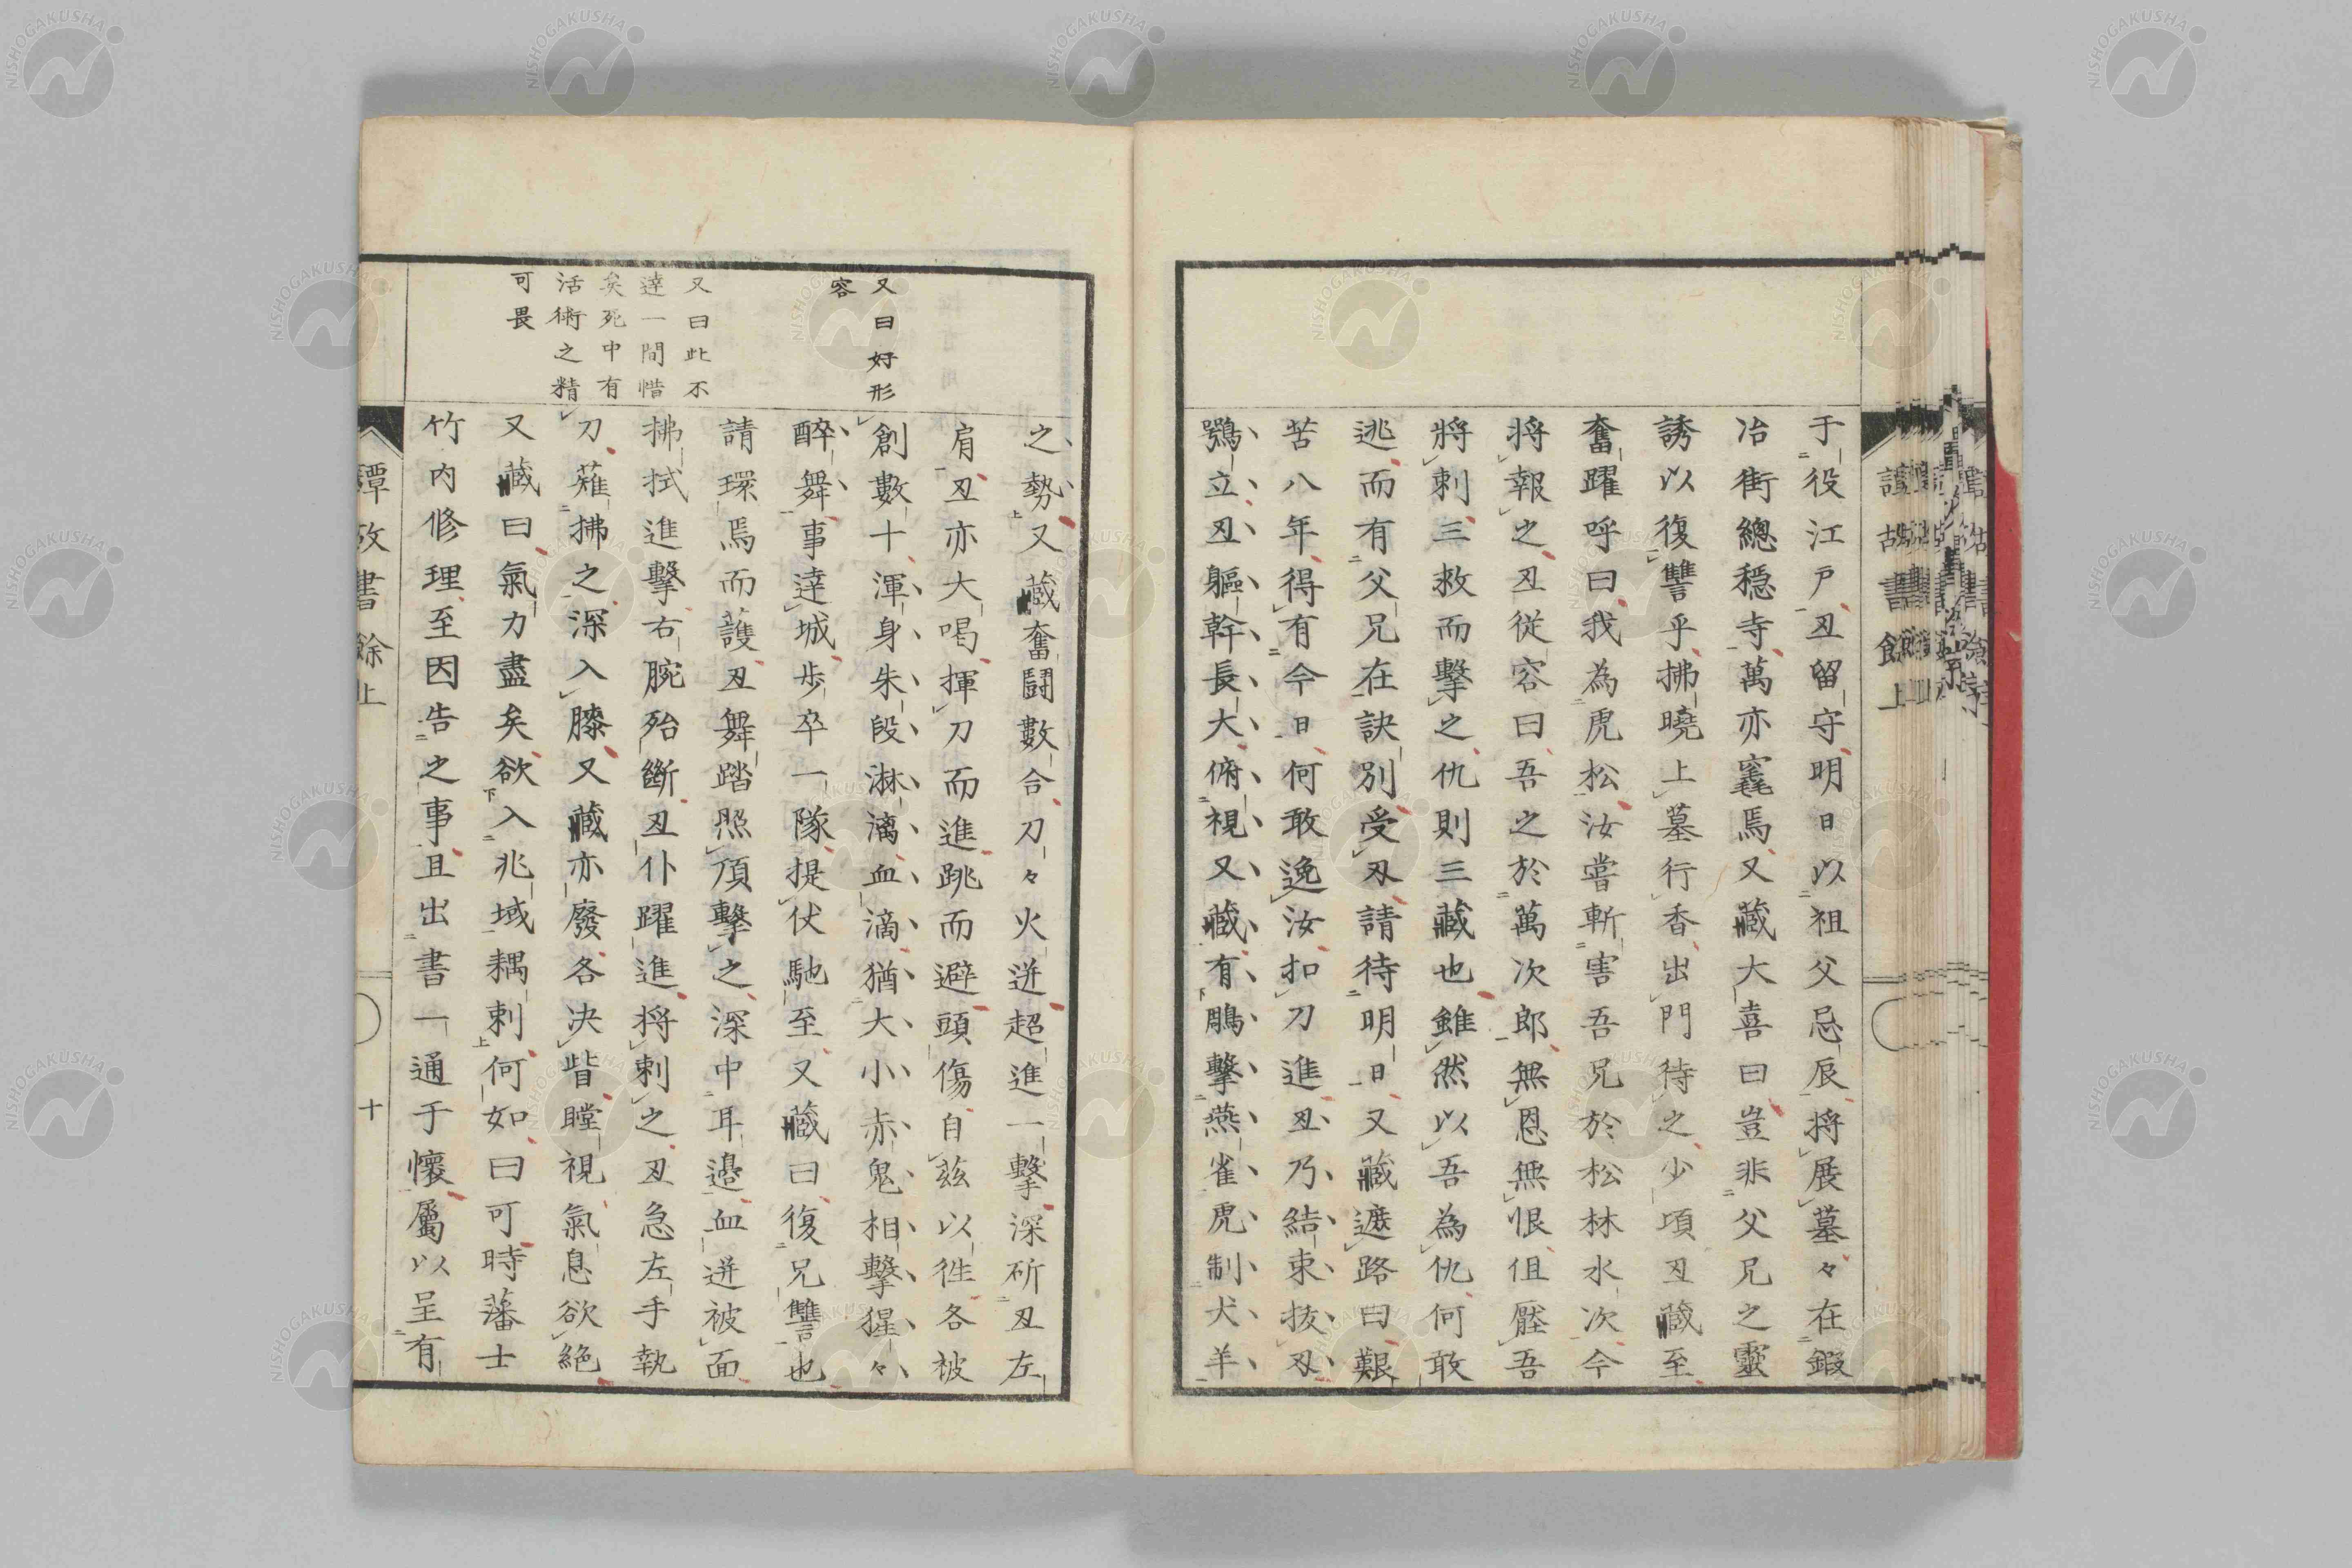 于役江戸丑留守明日以祖父忌辰將展墓々在鍜
冶街總穏寺萬亦窆焉又藏大喜曰豈非父兄之靈
誘以復讐乎拂曉上墓行香出門待之少頃丑藏至
奮躍呼曰我為虎松汝嘗斬害吾兄於松林水次今
将報之丑従容曰吾之於萬次郎無恩無恨但壓吾
將刺三救而擊之仇則三藏也雖然以吾為仇何敢
逃而有父兄在訣別受刃請待明日又藏遮路曰艱
苦八年得有今日何敢逸汝扣刀進丑乃結束抜刃
鶚立丑軀幹長大俯視又藏有鵰擊燕雀虎制犬羊
之勢又藏奮闘數合刀々火迸超進一擊深斫丑左
肩丑亦大喝揮刀而進跳而避頭傷自茲以徃各被
創數十渾身朱段淋漓血滴猶大小赤鬼相擊猩々
醉舞事達城歩卒一隊提仗馳至又藏曰復兄讐也
請環焉而護丑舞踏照頂擊之深中耳邉血迸被面
拂拭進擊右腕殆斷丑仆躍進將刺之丑急左手執
刀薙拂之深入膝又藏亦廢各决眥瞠視氣息欲絕
又藏曰氣力盡矣欲入兆域耦刺何如曰可時藩士
竹内修理至因告之事且出書一通于懷屬以呈有
又曰好形
容
又曰此不
達一間惜
矣死中有
活術之精
可畏
譚故書餘上
十